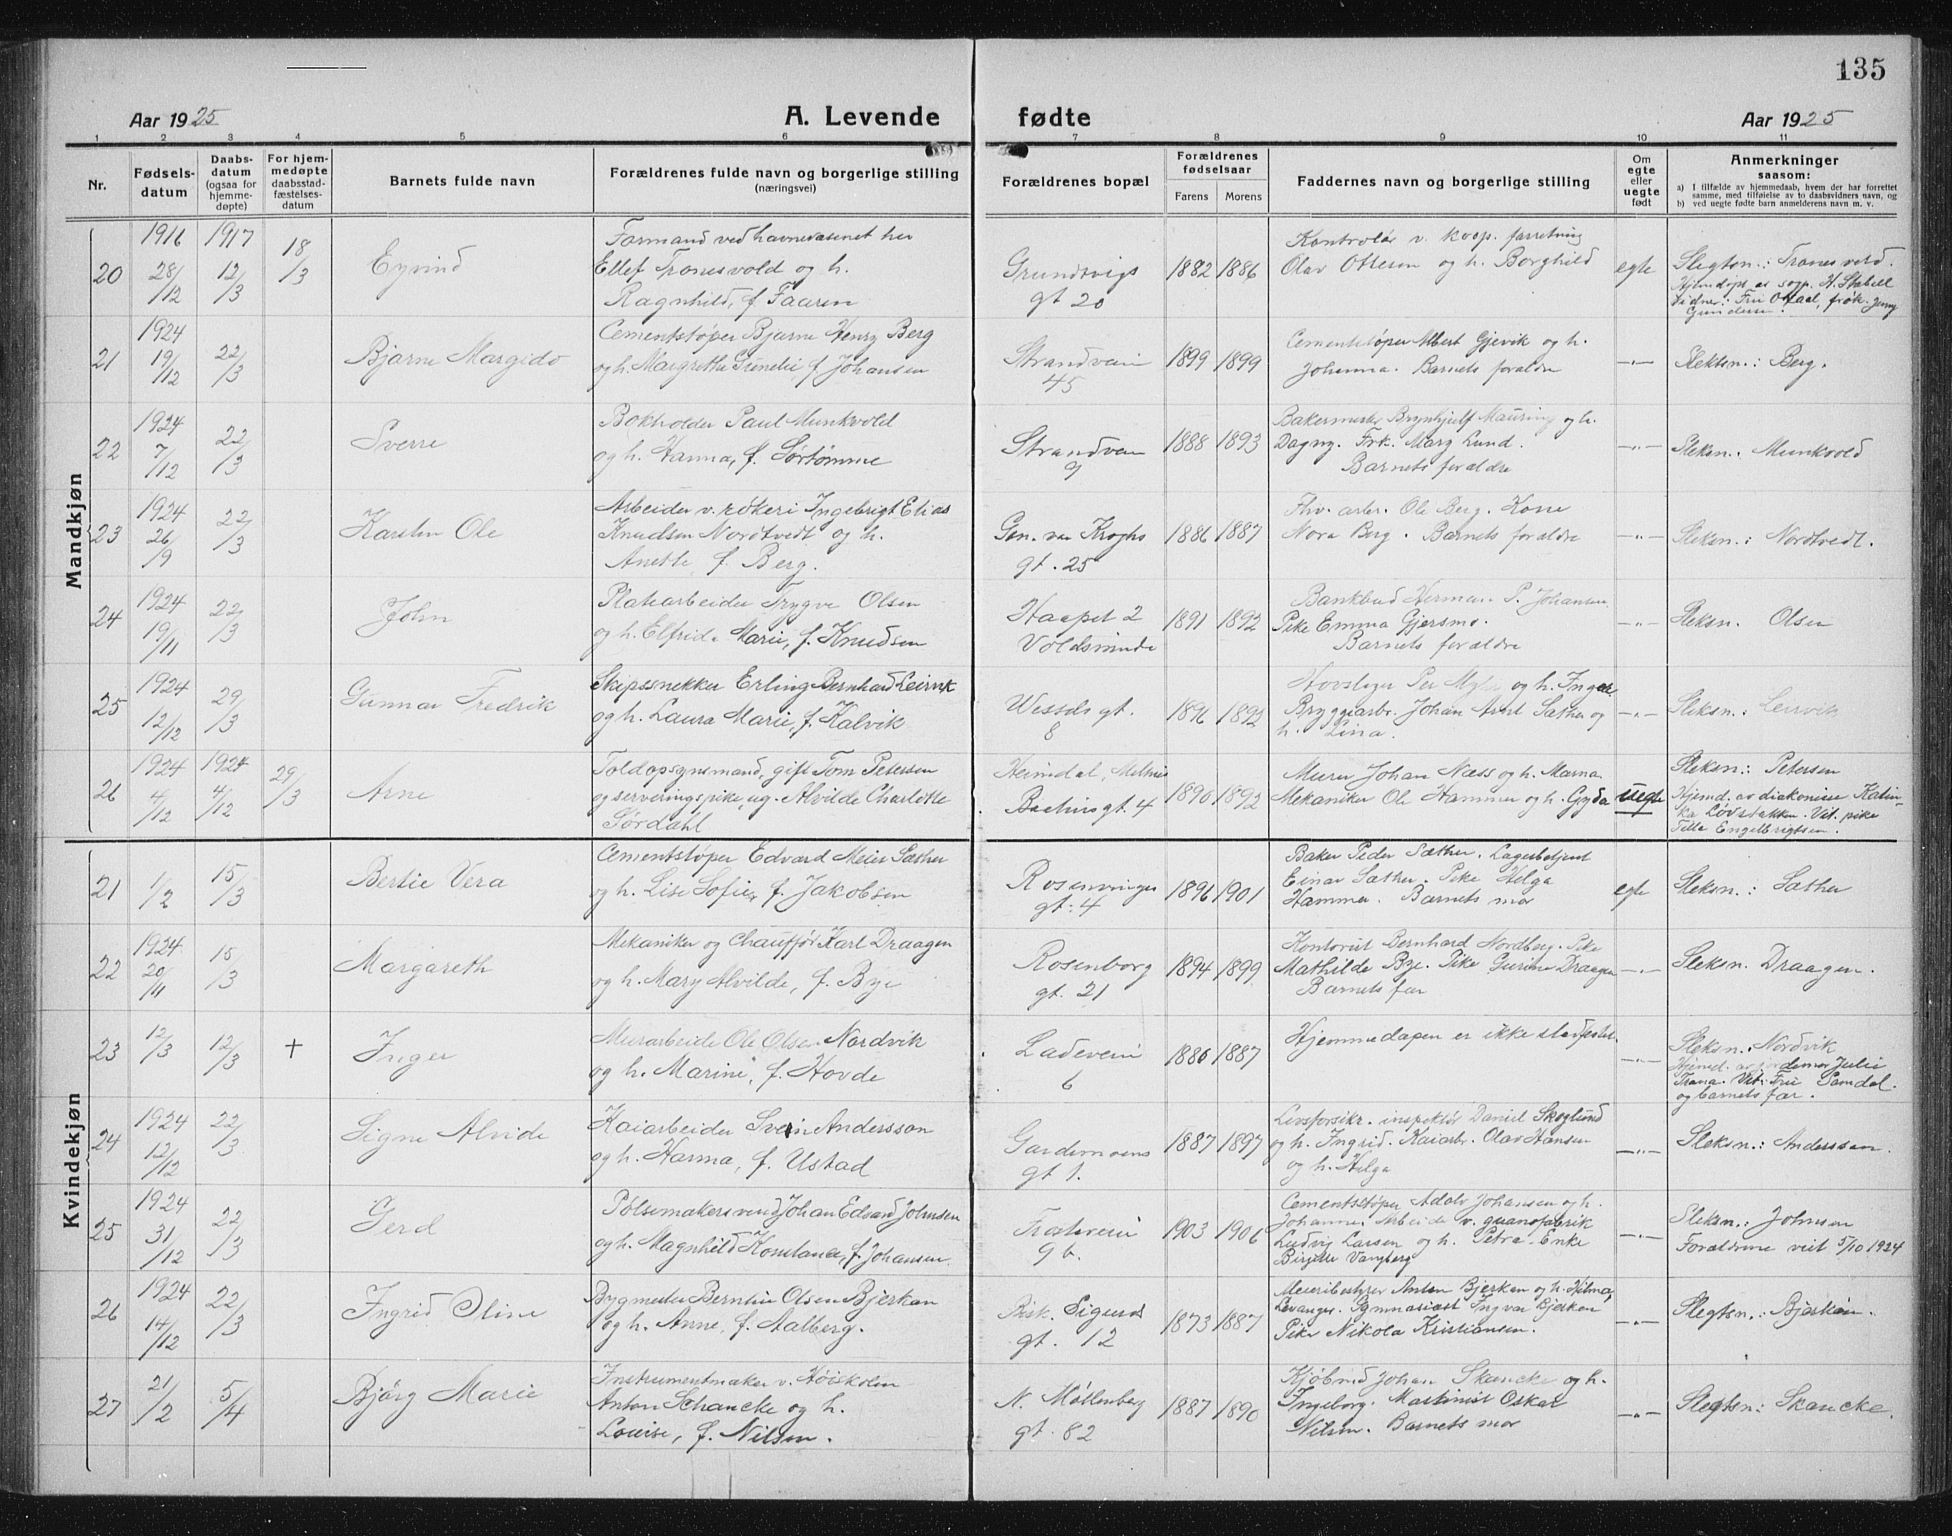 135
Aar 1925
A. Levende
fødte
Aar 1925
1 2 3 4 5 6 7 8 9 10 11
Nr.
Fødsels-
datum
Daabs-
datum
(ogsaa for
hjemme-
døpte)
For hjem-
medøpte
daabsstad-
fæstelses-
datum
Barnets fulde navn
Forældrenes fulde navn og borgerlige stilling
(næringsvei)
Forældrenes bopæl
Forældrenes
fødselsaar
Farens
Morens
Faddernes navn og borgerlige stilling
Om
egte
eller
uegte
født
Anmerkninger
saasom:
a) I tilfælde av hjemmedaab, hvem der har forrettet
samme, med tilføielse av to daabsvidners navn, og
b) ved uegte fødte barn anmelderens navn m. v.
Mandkjøn
20
1916
28/12
1917
12/3
18/3
Eyvind
Formand ved havnevæsenet her
Ellef Tronesvold og h.
Ragnhild, f. Faaren
Grundtvigs
gt 20
1882 1886
Kontrolør v. koop. forretning
Olav Ottesen og h. Borghild
egte
Slegtsn.: Tranesvold.
Hjemdøpt av sogp. H. Stabell
Vidner: Fru frøk. Jenny
Gundersen.
21
1924
19/12
22/3
Bjarne Margido
Cementstøper Bjarne Henry Berg
og h. Margrethe f. Johansen
Strandveien
45
1899 1899
Cementstøper Albert Gjevik og h.
Johanna. Barnets forældre
—"—
Slektsn.: Berg.
22
1924
7/12
22/3
Sverre
Bokholder Paul Munkvold
og h. Hanna, f. Sørtømme
Strandveien
9
1888 1893
Bakermester Brynhjulf Mauring og h.
Dagny. Frk. Marg Lund.
Barnets forældre
—"—
Sleksn. Munkvold
23
1924
26/9
22/3
Karstin Ole
Arbeider v. røkeri Ingebrigt Elias
Knudsen Nordtvedt og h.
Anette, f. Berg.
Gen. von Kroghs
gt. 25
1886 1887
Fhv. arbr. Ole Berg. Kone
Nora Berg. Barnets forældre
—"—
Sleksn.: Nordtvedt.
24
1924
19/11
22/3
John
Platearbeider Trygve Olsen
og h. Elfrida Marie, f. Knudsen
Haapet 2
Voldsminde
1891 1892
Bankbud Herman P. Johansen
Pike Emma Gjersmo.
Barnets forældre
—"—
Sleksn. Olsen
25
1924
12/12
29/3
Gunnar Fredrik
Skipssnekker Erling Bernhard Leirvik
og h. Laura Marie, f. Kalvik
Wessels gt.
8
1896 1892
Hovslager Per og h. Inga
Bryggearbr. Johan Arnt Sæther og
h. Lina.
—"—
Sleksn.: Leirvik
26
1924
4/12
1924
4/12
29/3
Arne
Toldopsynsmand, gift Tom Petersen
og serveringspike, ug. Alvilde Charlotte
Sørdahl
Heimdal, Melhus
Bachus gt. 4
1890 1892
Murer Johan Næss og h. Marna
Mekaniker Ole Hammer og h. Gyda
uegte
Sleksn.: Petersen
Hjemd. av diakonisse Katin-
ka Løvstakken. Vit. pike
Tilla Engelbrigtsen.
Kvindekjøn
21
1/2
15/3
Bertie Vera
Cementstøper Edvard Meier Sæther
og h. Lise Sofie, f. Jakobsen
Rosenvinges
gt: 4
1896 1901
Baker Peder Sæther. Lagerbetjent
Einar Sæther. Pike Helga
Hammer. Barnets mor
egte
Sleksn.: Sæther
22
1924
20/11
15/3
Margareth
Mekaniker og Chauffør Karl Draagen
og h. Mary Alvilde, f. Bye
Rosenborg
gt. 21
1894 1899
Kontorist Bernhard Nordberg. Pike
Mathilde Bye. Pike Gurine Draagen
Barnets far
—"—
Sleksn. Draagen.
23
12/3
12/3
+
Inger
Murarbeider Ole Olsen Nordvik
og h. Marine, f. Hovde
Ladeveien
6
1886 1887
Hjemmedaapen er ikke stadfestet.
—"—
Sleksn.: Nordvik
Hjemd. av jordemor Julie
Trana. Vit: Fru Samdal.
og barnets far.
24
1924
12/12
22/3
Signe Alvide
Kaiarbeider Svein Andersson
og h. Hanna, f. Ustad
Gardermoens
gt 1.
1887 1897
Livsforsikr. inspektør Daniel Skoglund
og h. Ingrid. Kaiarbr. Olav Hansen
og h. Helga
—"—
Sleksn: Anderssen.
25
1924
31/12
22/3
Gerd
Pølsemakersvend Johan Edvard Johnsen
og h. Magnhild Konstance, f. Johansen.
9 b.
1903 1906
Cementstøper Adolv Johansen og h.
Johanne. Arbeider v. guanofabrik
Ludvig Larsen og h. Petra. Enke
Birgitte Vangberg
—"—
Sleksn.: Johnsen
Forældrene veit 5/10 1924
26
1924
14/12
22/3
Ingrid Oline
Bygmester Berntin Olsen Bjerkan
og h. Anne, f. Aalberg.
Bisk. Sigurds
gt. 12
1873 1887
Meieribestyrer Anton Bjerken og h. Hilma,
Levanger. Gymnasiast Ingvar Bjerken
Pike Nikola Kristiansen.
—"—
Slegtsn.: Bjerkan.
27
21/2
5/4
Bjørg Marie
Instrumentmaker v. Høiskolen
Anton Schancke og h.
Louise, f. Nilsen.
N. Møllenberg
gt. 82
1887 1890
Kjøbmd Johan Skancke og h.
Ingeborg. Maskinist Oskar
Nilsen. Barnets mor
—"—
Slegtsn: Skancke.